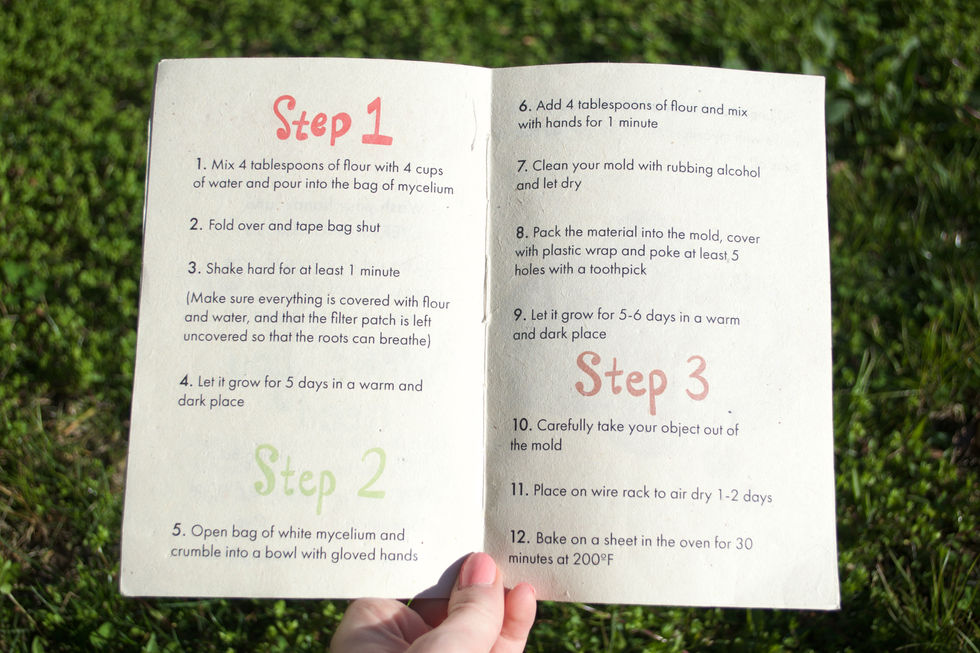 Step 1
1. Mix 4 tablespoons of flour with 4 cups
of water and pour into the bag of mycelium
2. Fold over and tape bag shut
3. Shake hard for at least 1 minute
(Make sure everything is covered with flour
and water, and that the filter patch is left
uncovered so that the roots can breathe)
4. Let it grow for 5 days in a warm and
dark place
Step 2
5. Open bag of white mycelium and
crumble into a bowl with gloved hands
6. Add 4 tablespoons of flour and mix
with hands for 1 minute
7. Clean your mold with rubbing alcohol
and let dry
8. Pack the material into the mold, cover
with plastic wrap and poke at least 5
holes with a toothpick
9. Let it grow for 5-6 days in a warm
and dark place
Step 3
10. Carefully take your object out of
the mold
11. Place on wire rack to air dry 1-2 days
12. Bake on a sheet in the oven for 30
minutes at 200ºF